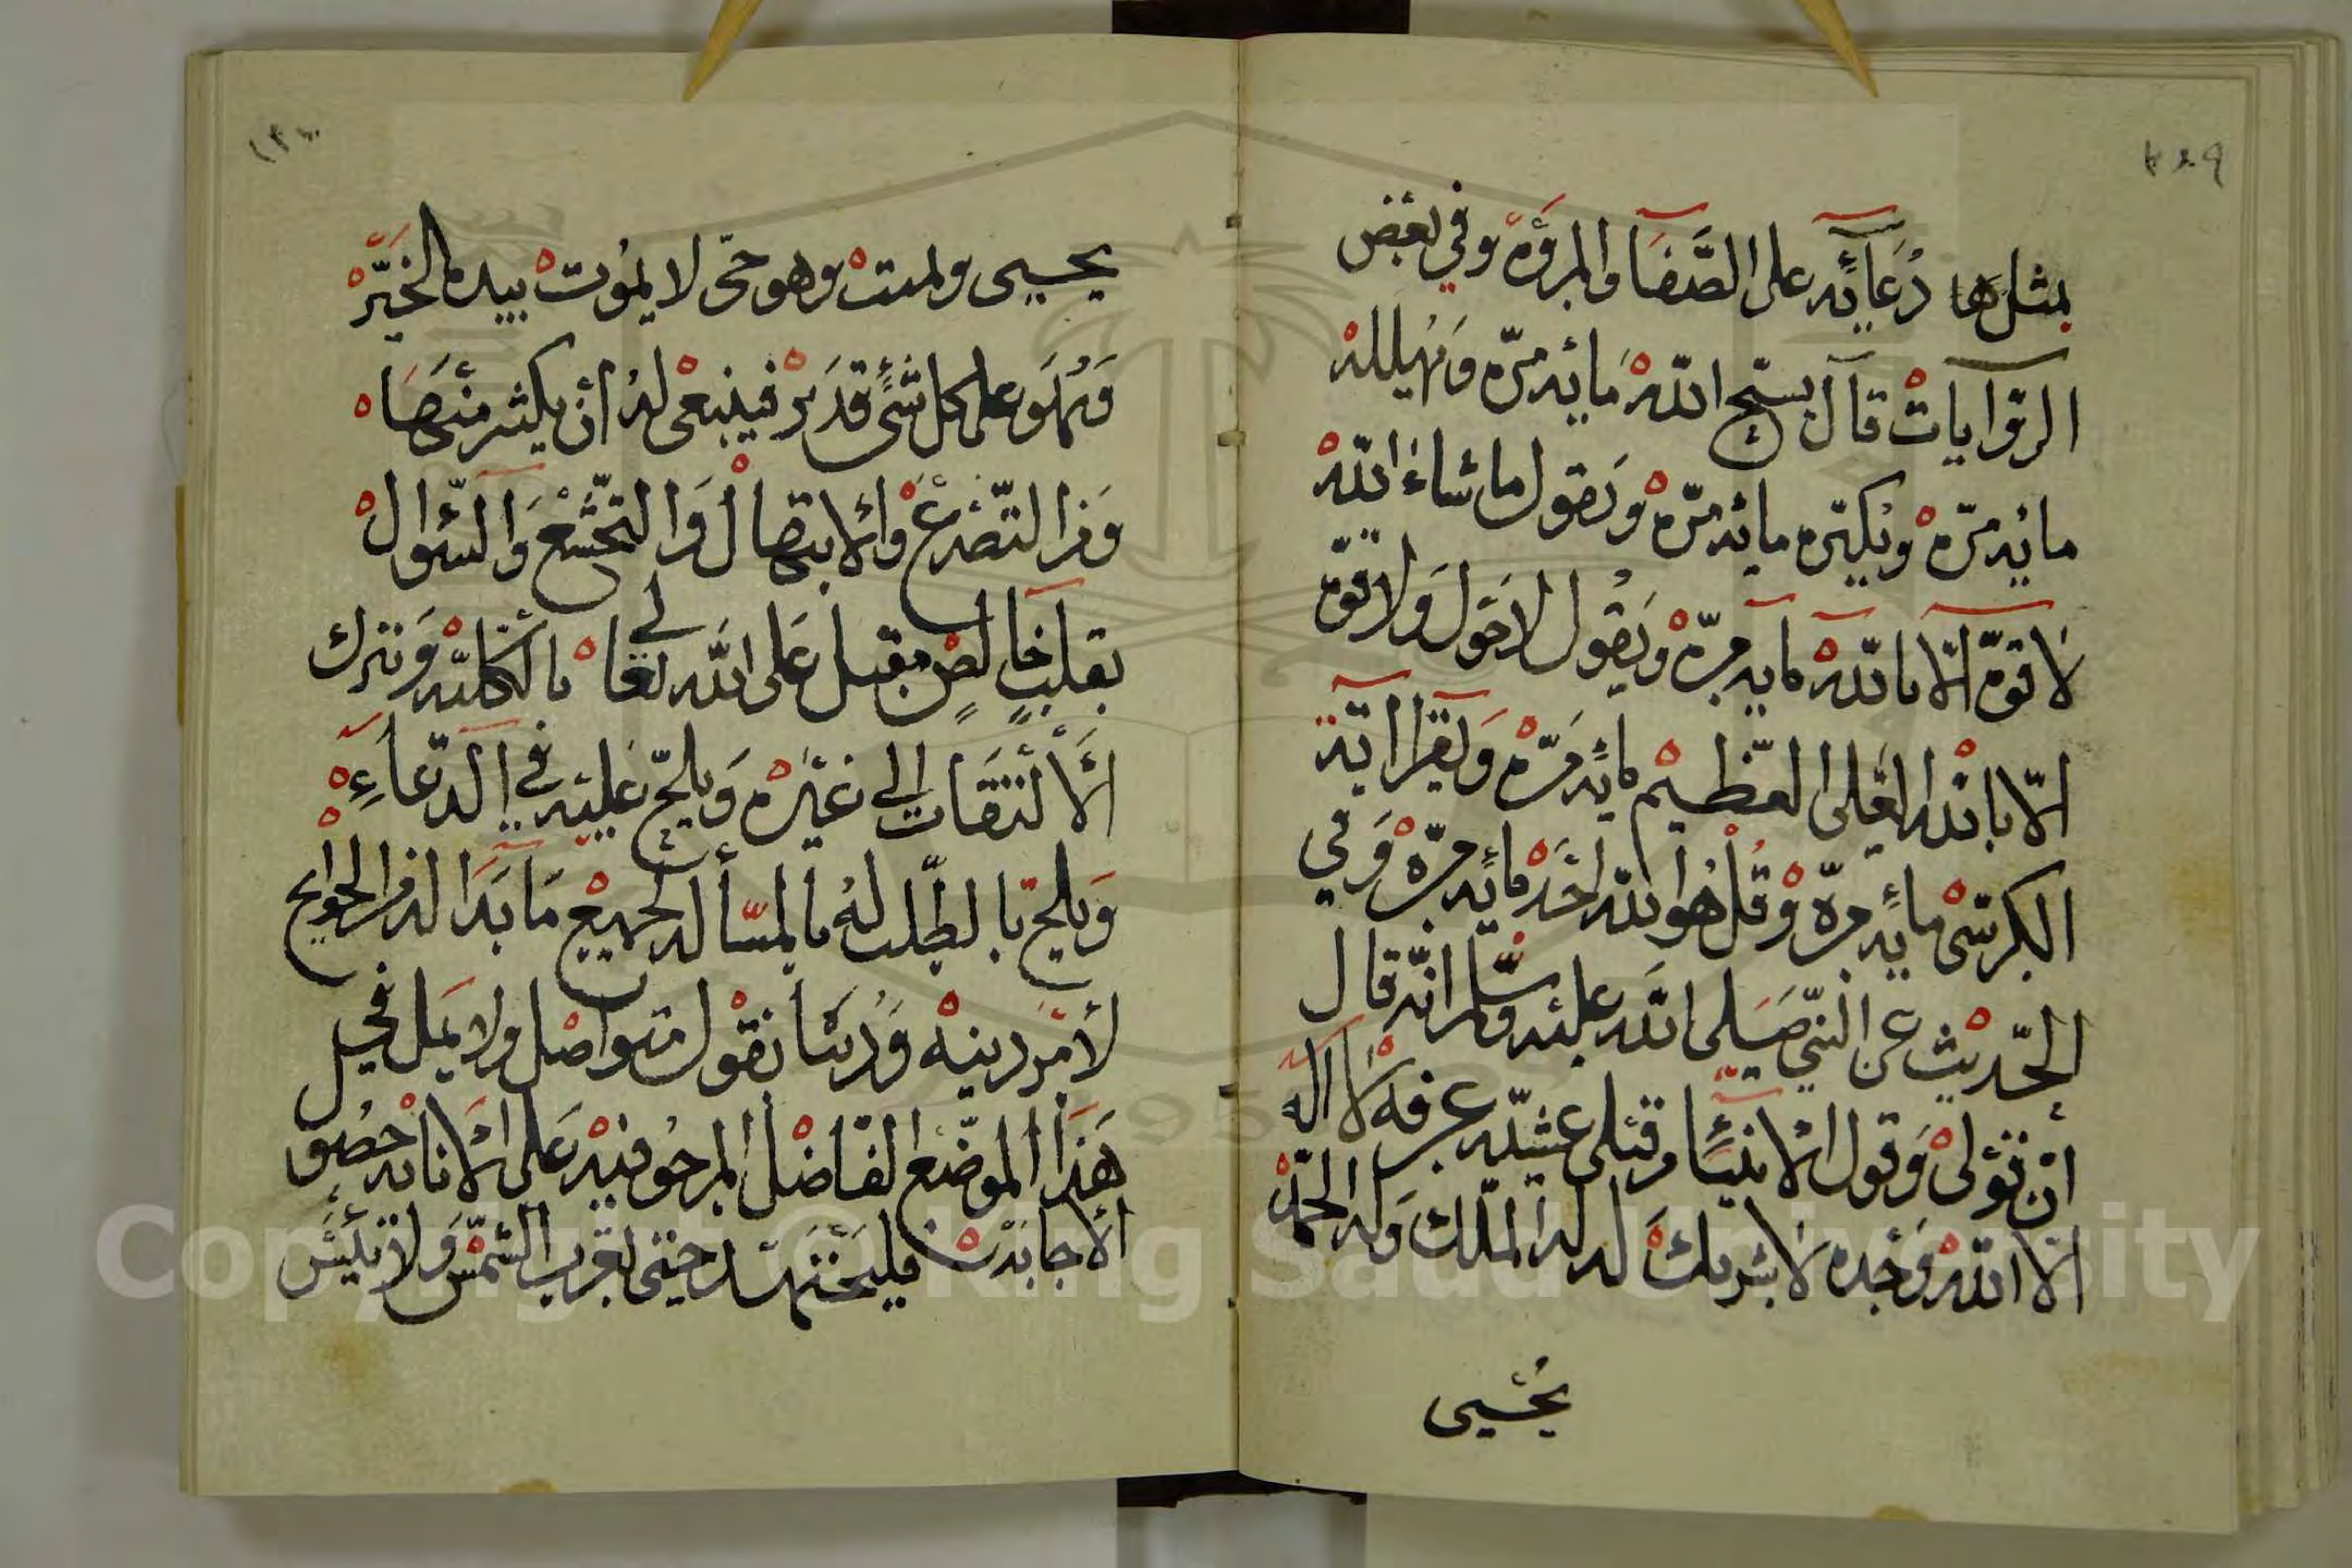 ٢٤٩
بمثلها دُعَآئِه على الصَّفَا والمروَة وفي بعض
الروايات قال يسبّح الله مايه مرّه وَيهلله
مايه مرّه ويكبّره مايه مرّه وَيقول ما شاءَ الله
لا قوّه الّا بالله مايه مرّه وَيقول لا حَول وَلا قوّه
الّا بالله العَلى العَظيم مايه مرّه وَيقرا اية
الكرسى مايه مرّه وَقُل هُوا الله احَد مايه مرّه وَفي
الحَديث عَن النبيّ صَلى الله عليه وسَلم انّه قال
انّ قولى وَقول الانبيَآء من قبلى عشيّه عرفه لا اله
الا الله وَحده لا شريك له له الملك وَله الحمد
يحيى
يحيى ويميت وهو حىّ لا يموت بيده الخَيْر
وَهُوَ على كل شىء قدير فينبغى له أن يكثر منهَا
وَمن التضرع والابتهال وَالتخشع وَالسؤال
بقلب خالص مقبل عَلى الله تعالى بالكليّه وَترك
الالتفات إلى غيره وَيلحّ عَليه في الدّعآءِ
وَيلح بالطلب له بالمسأله لجميع مَا بَدَا له من الحوايج
لأمر دينه وَدنيا بقول متواصل ولا يمل في
هَذا الموضع الفاضل المرجو فيه عَلى الانابه حصُول
الاجابة فليجتهد حتى تغرب الشمس وَلا ييئس